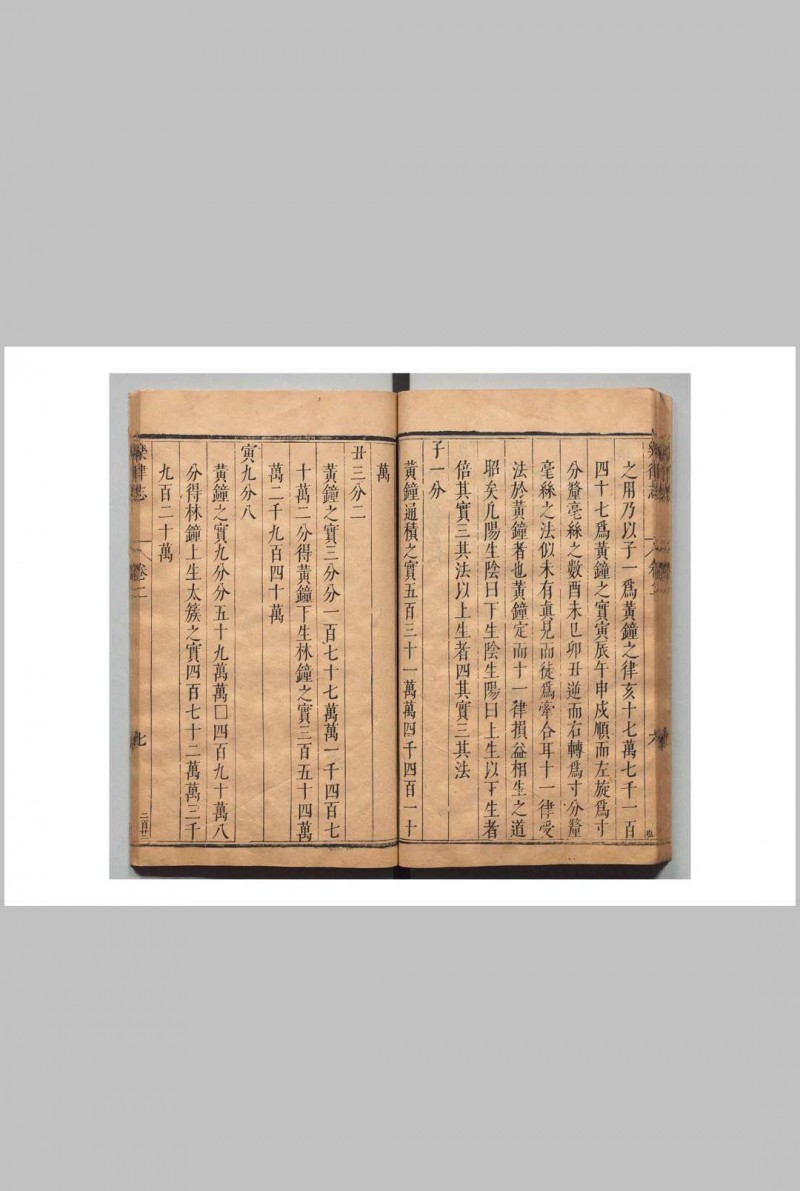 之用乃以子一爲黃鐘之律亥十七萬七千一百
四十七爲黃鐘之實寅辰午申戌順而左旋爲寸
分釐毫絲之數酉未巳卯丑逆而右轉爲寸分釐
毫絲之法似未有眞見而徒爲牽合耳十一律受
法於黃鐘者也黃鐘定而十一律損益相生之道
昭矣凡陽生陰曰下生陰生陽曰上生以下生者
倍其實三其法以上生者四其實三其法
子一分
黃鐘通積之實五百三十一萬萬四千四百一十
萬
丑三分二
黃鐘之實三分分一百七十七萬萬一千四百七
十萬二分得黃鐘下生林鐘之實三百五十四萬
萬二千九百四十萬
寅九分八
黃鐘之實九分分五十九萬萬□四百九十萬八
分得林鐘上生太簇之實四百七十二萬萬三千
九百二十萬
樂律志
卷二
七
二百廿二